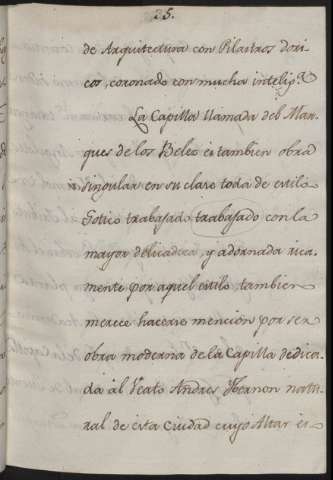 25.
de Arquitectura con Pilastros dori
cos, coronado con mucha intelig.ª
La Capilla llamada del Mar-
ques de los Velez es tambien obra
singular en su clase toda de estilo
Gotico trabajado trabajado con la
mayor delicadeza, y adornada rica
mente por aquel estilo tambien
merece hacerse mencion por ser
obra moderna de la Capilla dedica-
da al Beato Andres Hernon natu-
ral de esta Ciudad cuyo Altar es-